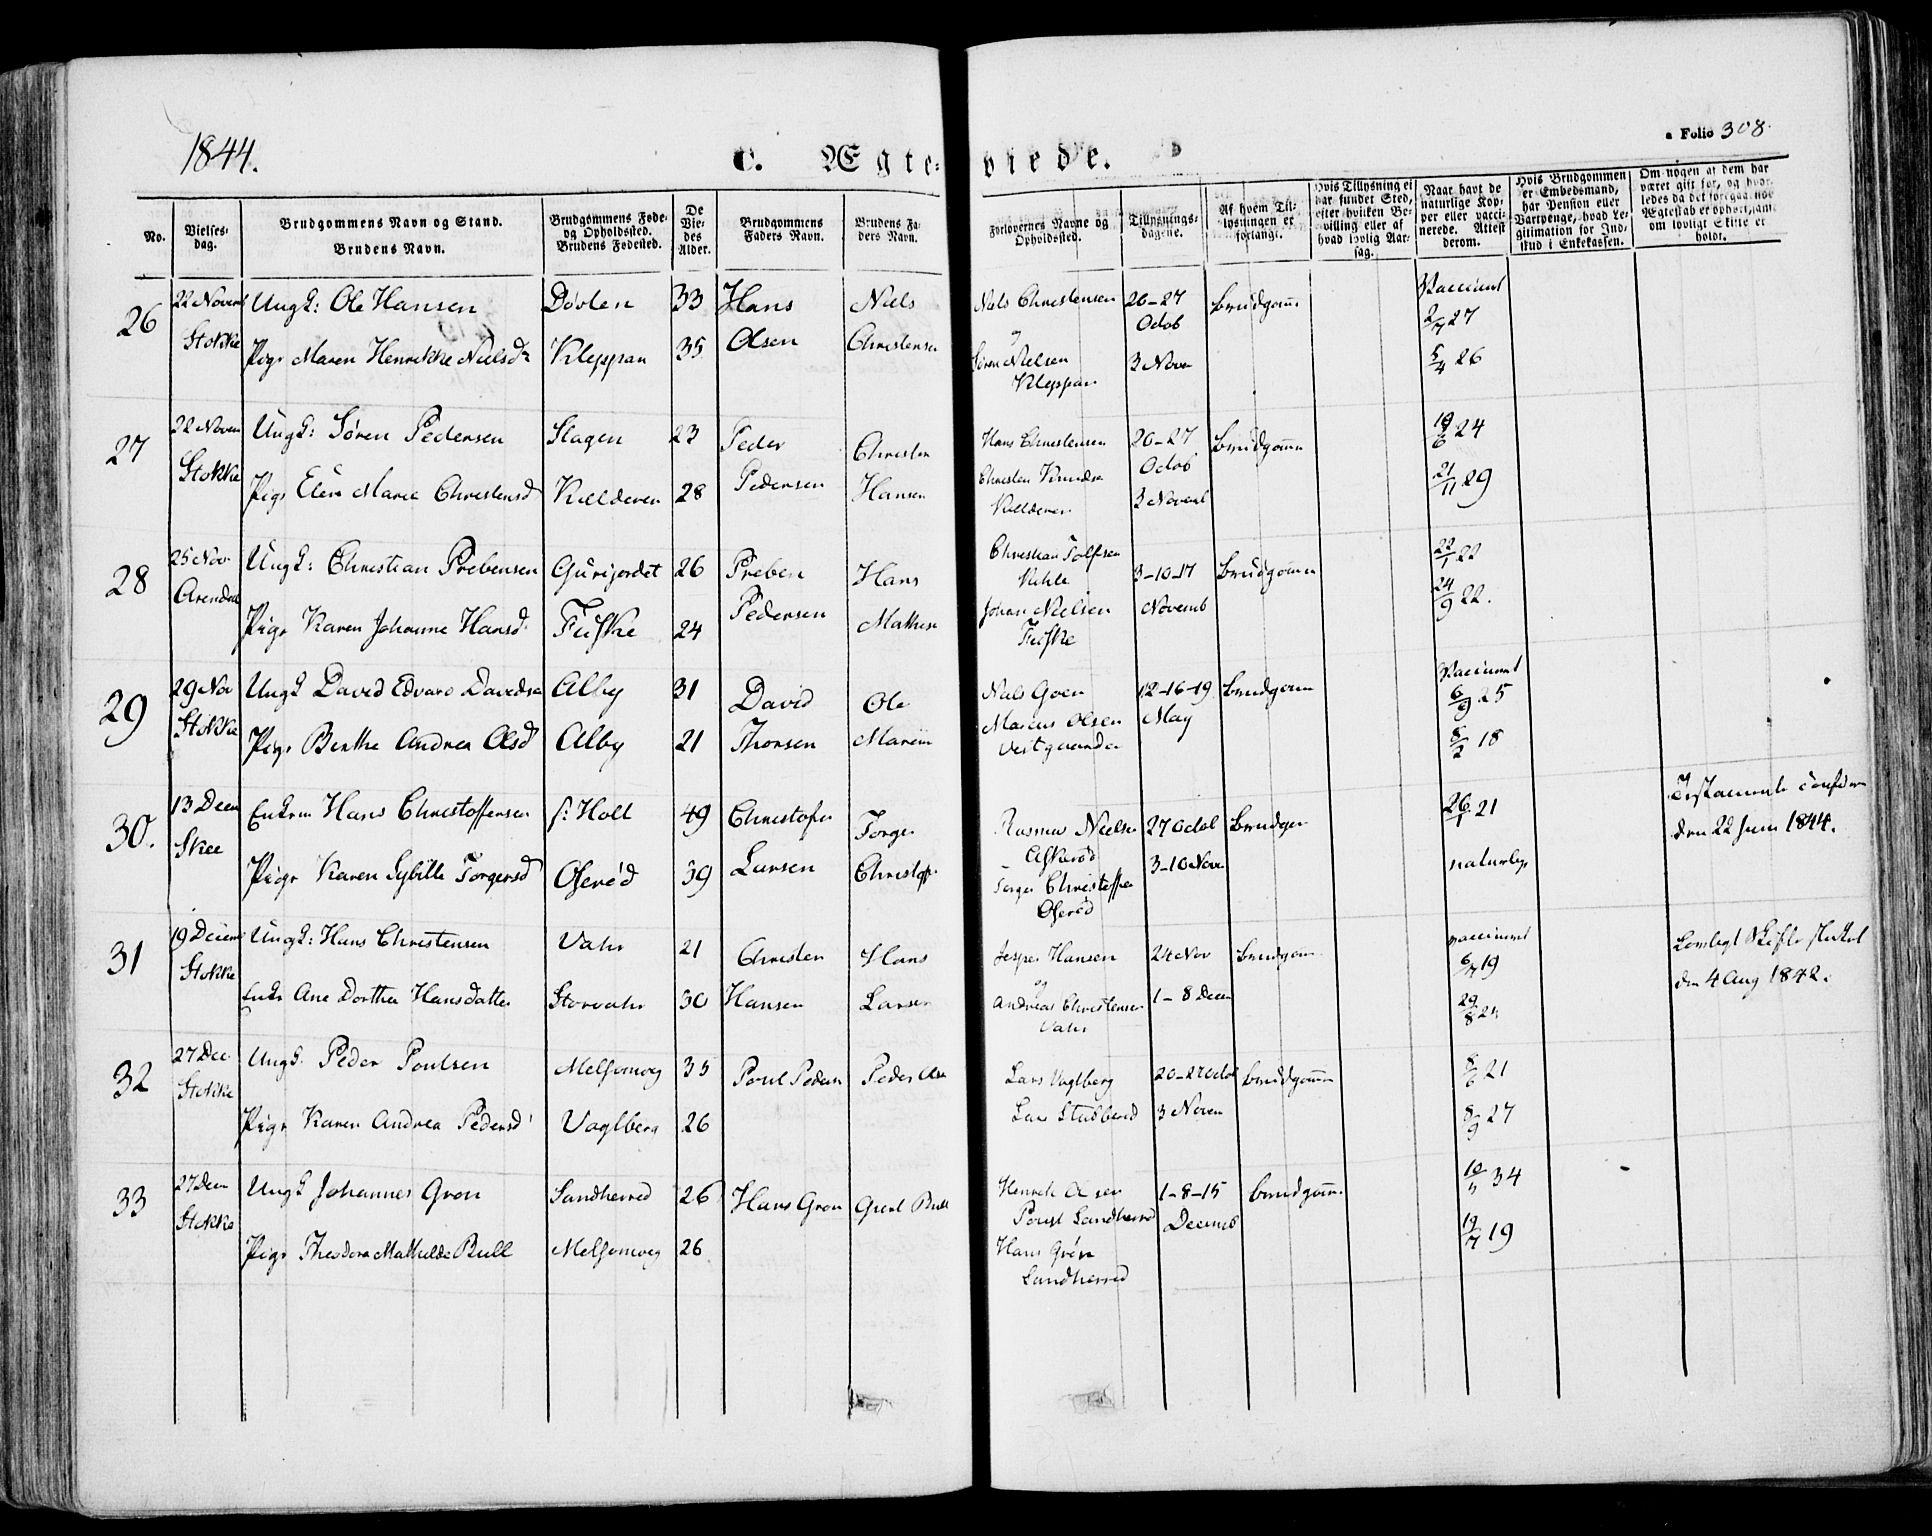 1844.
C. Ægte-viede.
a Folio 308.
No.
Vielses-dag.
Brudgommens Navn og Stand.
Brudens Navn.
Brudgommens Føde-
og Opholdssted.
Brudens Fødested.
De
Vie-
des
Alder.
Brudgommens
Faders Navn.
Brudens Fa-
ders Navn.
Forlovernes Navne og
Opholdssted.
Tillysnings-
dagene.
Af hvem Til-
lysningen er
forlangt.
Hvis Tillysning ei
har fundet Sted,
efter hvilken Be-
villing eller af
hvad lovlig Aar-
sag.
Naar havt de
naturlige Kop-
per eller vacci-
nerede. Attest
derom.
Hvis Brudgommen
er Embedsmand,
har Pension eller
Vartpenge, hvad Le-
gitimation for Ind-
skud i Enkekassen.
Om nogen af dem har
været gift før, og hvor-
ledes da det foregaaende
Ægteskab er ophørt, samt
om lovligt Skifte er
holdt.
26
22 Novemb
Stokke
Ungk: Ole Hansen
Pige Maren Henrikke Nielsd
Døvlen
Kleppan
33
35
Hans
Olsen
Niels
Christensen
Niels Christensen
og
Søren Nielsen
Kleppan
20-27
Octob
3 Novem
Brudgom
Vaccineret
2/7 27
5/4 26
27
22 Novem
Stokke
Ungk: Søren Pedersen
Pige Elen Marie Christensd
Slagen
Killderen
23
28
Peder
Pedersen
Christen
Hansen
Hans Christensen
Christen
Killderen
20-27
Octob
3 Novemb
Brudgom
19/6 24
21/11 29
28
25 Nov
Arendal
Ungk: Christian Prebensen
Pige Karen Johanne Hansd
Gurijordet
Fuske
26
24
Preben
Pedersen
Hans
Mathisen
Christian Tolfsen
Johan Nielsen
Fuske
3-10-17
Novemb
Brudgomm
22/1 22
24/9 22.
29
29 Nov
Stokke
Ungk David Edvard Davidsen
Pige Berthe Andrea Olsd
Alby
Alby
31
21
David
Thorsen
Ole
Niels Goen
Marcus Olsen
12-16-19
May
Brudgom
Vaccineret
6/9 25
8/2 18
30.
13 Decm
Skee
Enkem Hans Christoffersen
Pige Karen Sybille Torgersd
Holt
Oserød
49
39
Christofer
Larsen
Torger
Christoff
Rasmus Nielsen
Askerød
Torger Christoffer
Oserød
27 Octob
3-10 Nove
Brudgom
26/1 21
naturlige
Testamente
den 22 Juni 1844.
31
19 Decem
Stokke
Ungk: Hans Christensen
Enke Ane Dorthea Hansdatter
Vahr
Storvahr
21
30
Christen
Hansen
Hans
Larsen
Jesper Hansen
og
Andreas Christensen
Vahr
24 Nov
1-8 Decm
Brudgom
vaccineret
6/7 19
Lovligt Skifte sluttet
den 4 Aug 1842.
32
27 Dec
Stokke
Ungk. Peder Poulsen
Pige Karen Andrea Pedersd
Melsomvig
Vaglberg
35
26
Poul Pedersen
Peder Olsen
Lars Vaglberg
Lars Stubberød
20-27 Octob
3 Novem
Brudgomm
8/6 21
8/9 27
33
27 Decm
Stokke
Ungk Johannes Grøn
Pige Theodora Mathilde Bull
Sandherred
Melsomvig
26
26
Hans Grøn
Giert Bull
Henrik Olsen
Sandherred
Hans Grøn
Sandherred
1-8-15
Decemb
Brudgom
34
19/7 19